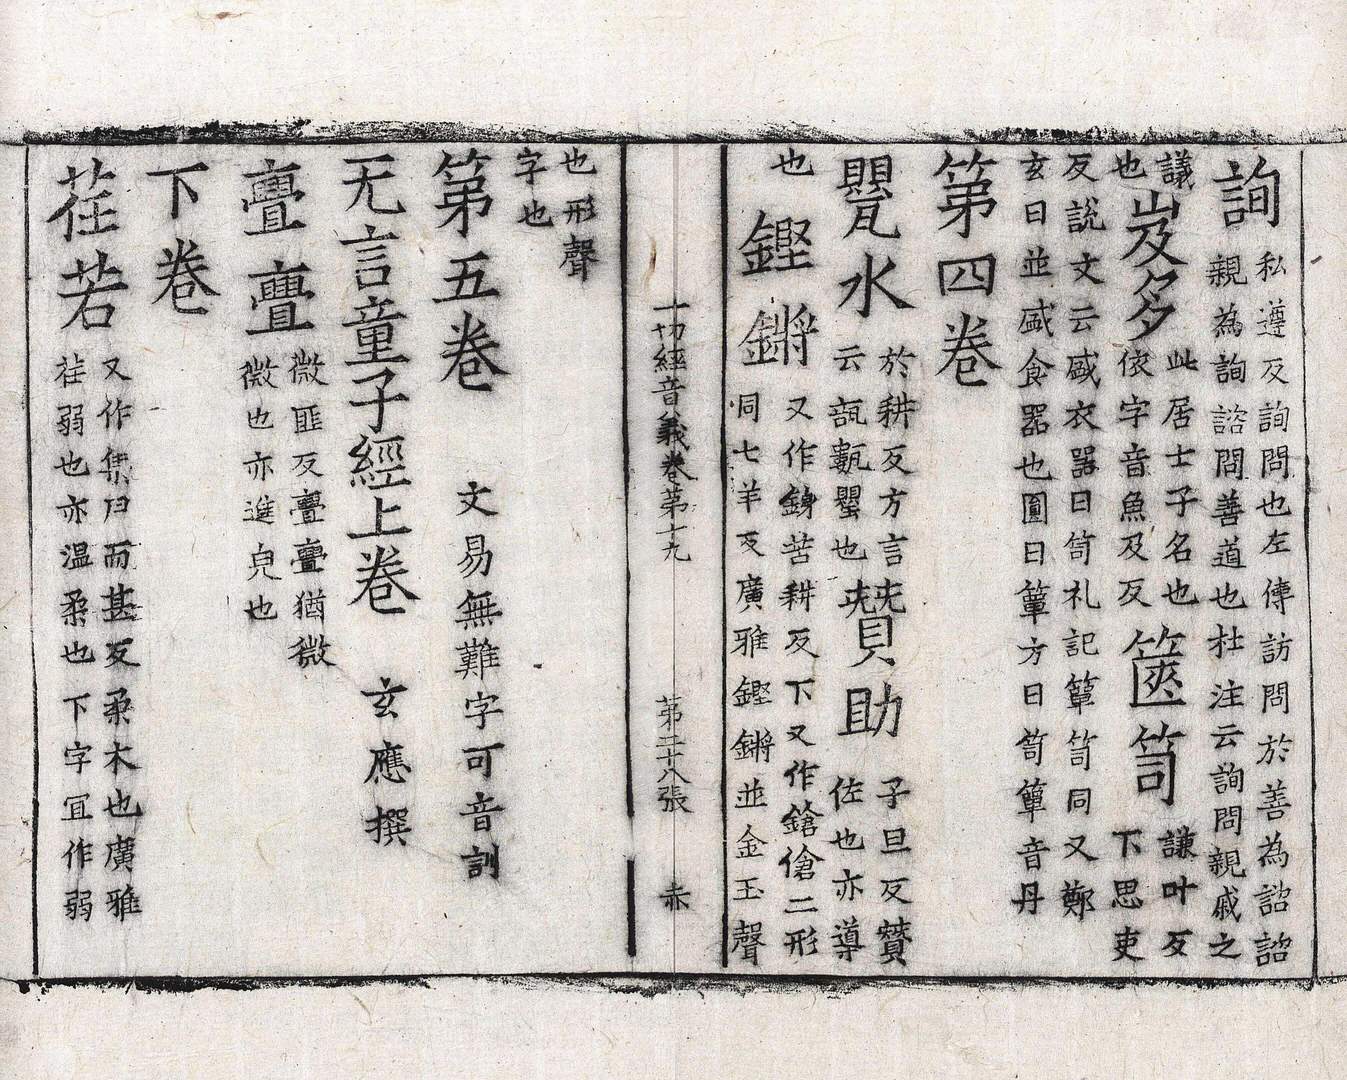 詢 私遵反詢問也左傳訪問於善為諮諮
親為詢諮問善道也杜注云詢問親戚之
議
也 岌多 此居士子名也
依字音魚及反 篋笥 謙叶反
下思吏
反說文云盛衣器曰笥礼記簞笥同又鄭
玄曰並盛食器也圓曰簞方曰笥簞音丹
第四卷
甖水 於耕反方言
云瓿甊甖也 賛助 子旦反賛
佐也亦導
也 鏗鏘 又作鏮苦耕反下又作鎗傖二形
同七羊反廣雅鏗鏘並金玉聲
一切經音義卷第十九 第二十八張 赤
也形聲
字也
第五卷 文易無難字可音訓
无言童子經上卷 玄應撰
亹亹 微匪反亹亹猶微
微也亦進皃也
下卷
荏若 又作集同而甚反柔木也廣雅
荏弱也亦温柔也下字冝作弱